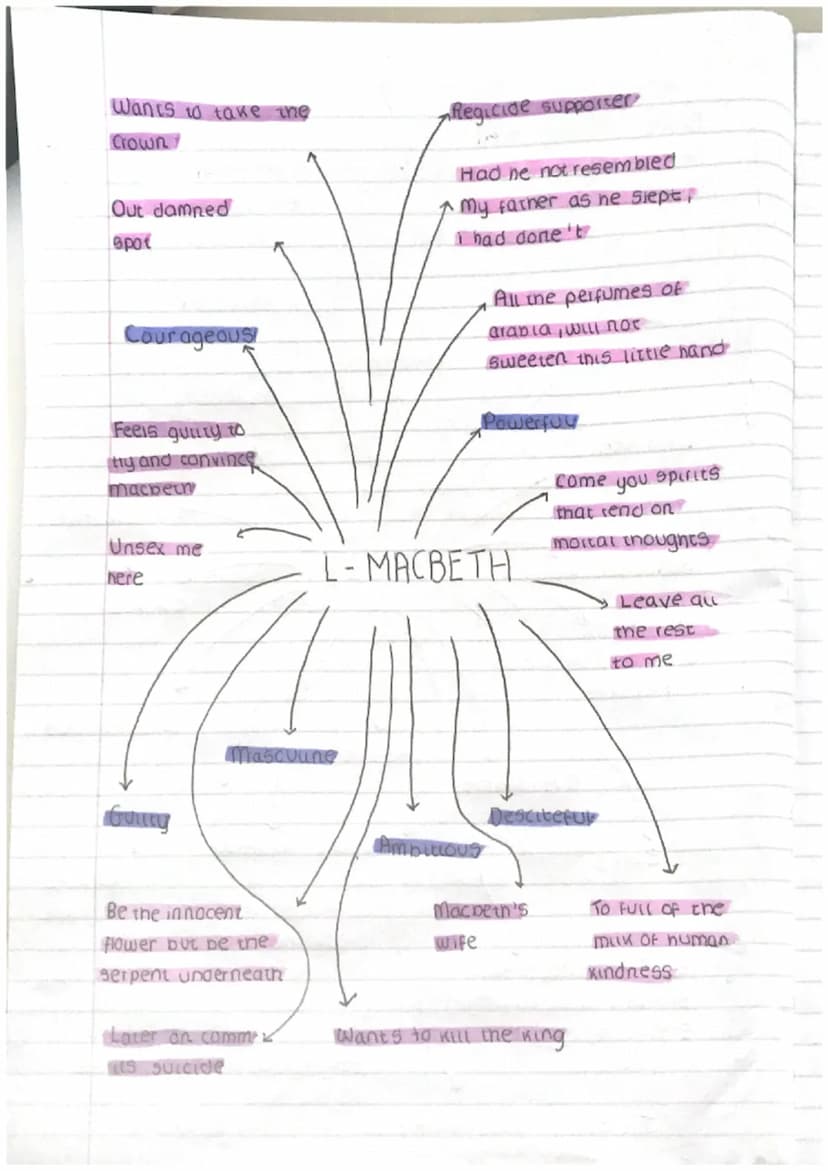 Wants to take the
crown
Regicide supporter
Had he not resembled
my father as he slept,
i had done't
Out damned
spot
All the perfumes of
arabia, will not
sweeten this little hand
Courageous
Powerful
Feels guilty to
try and convince
macbeth
Come you spirits
that tend on
mortal thoughts
Unsex me
here
L-MACBETH
Leave all
the rest
to me
Masculine
Guilty
Desciteful
Ambitious
Be the innocent
flower but be the
serpent underneath
Macbeth's
wife
To full of the
milk of human
kindness
Later on comm-
its suicide
Wants to kill the king